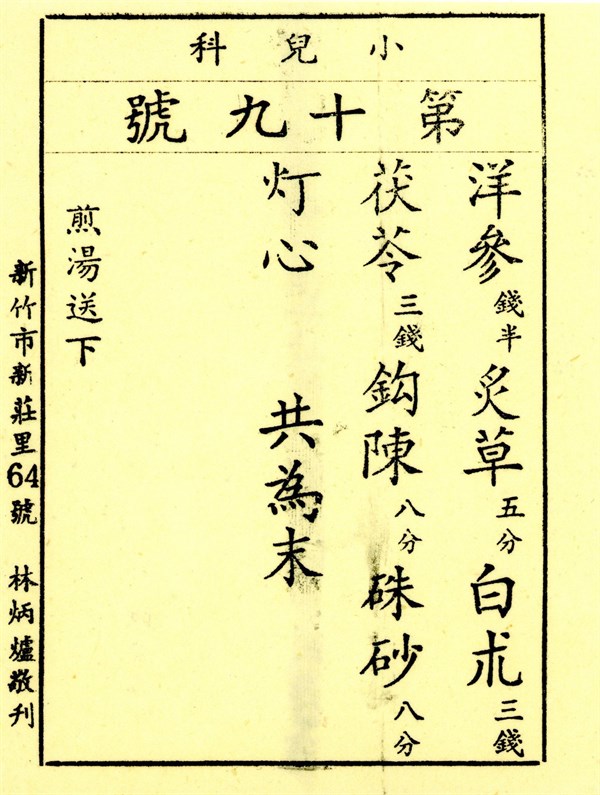 小兒科
第十九號
洋參錢半炙草五分白朮三錢
茯苓三錢鈎陳八分硃砂八分
灯心 共為末
煎湯送下
新竹市新莊里64號 林炳爐敬刋